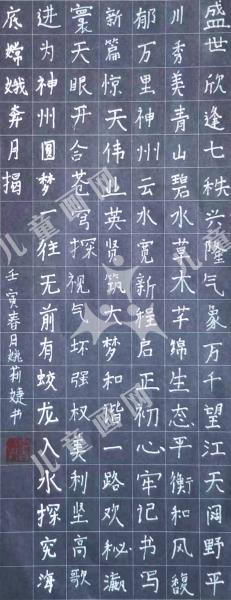 盛世欣逢七秩兴隆气象万千望江天阔野平
川秀美青山碧水草木芊绵生态平衡和风馥
郁万里神州云水宽新程启正初心牢记书写
新篇惊天伟业英贤筑大梦和谐一路欢秘瀛
寰天眼开合苍写探视气坏强权美利坚高歌
进为神州圆梦一往无前有蛟龙入水探究海
底嫦娥奔月揭
壬寅春月姚莉婕书
儿童画网
儿童画网
儿童画网